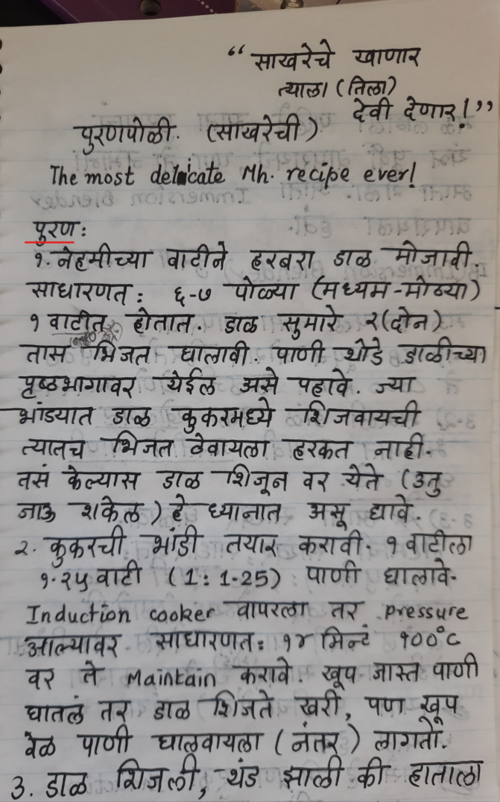 “ साखरेचे खाणार
त्याला (तिला)
देवी देणार! ”
पुरणपोळी. (साखरेची)
The most delicate Mh. recipe ever!
पुरण:
१. नेहमीच्या वाटीने हरबरा डाळ मोजावी.
साधारणत: ६-७ पोळ्या (मध्यम-मोठ्या)
१ वाटीत होतात. डाळ सुमारे २(दोन)
तास भिजत घालावी. पाणी थोडे डाळीच्या
पृष्ठभागावर येईल असे पहावे. ज्या
भांड्यात डाळ कुकरमध्ये शिजवायची
त्यातच भिजत ठेवायला हरकत नाही.
तसं केल्यास डाळ शिजून वर येते (उतु
जाऊ शकेल) हे ध्यानात असू द्यावे.
२. कुकरची भांडी तयार करावी. १ वाटीला
१.२५ वाटी (1:1.25) पाणी घालावे.
Induction cooker वापरला तर pressure
आल्यावर साधारणत: १४ मिन्टं १००°c
वर ते Maintain करावे. खूप जास्त पाणी
घातलं तर डाळ शिजते खरी, पण खूप
वेळ पाणी घालवायला (नंतर) लागतो.
3. डाळ शिजली, थंड झाली की हाताला